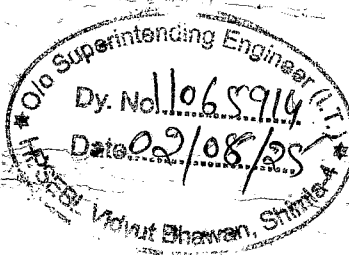 O/o Superintending Engineer (I.T.)
Dy. No 11065914
Date 02/08/25
HPSEBL Vidyut Bhawan, Shimla-4